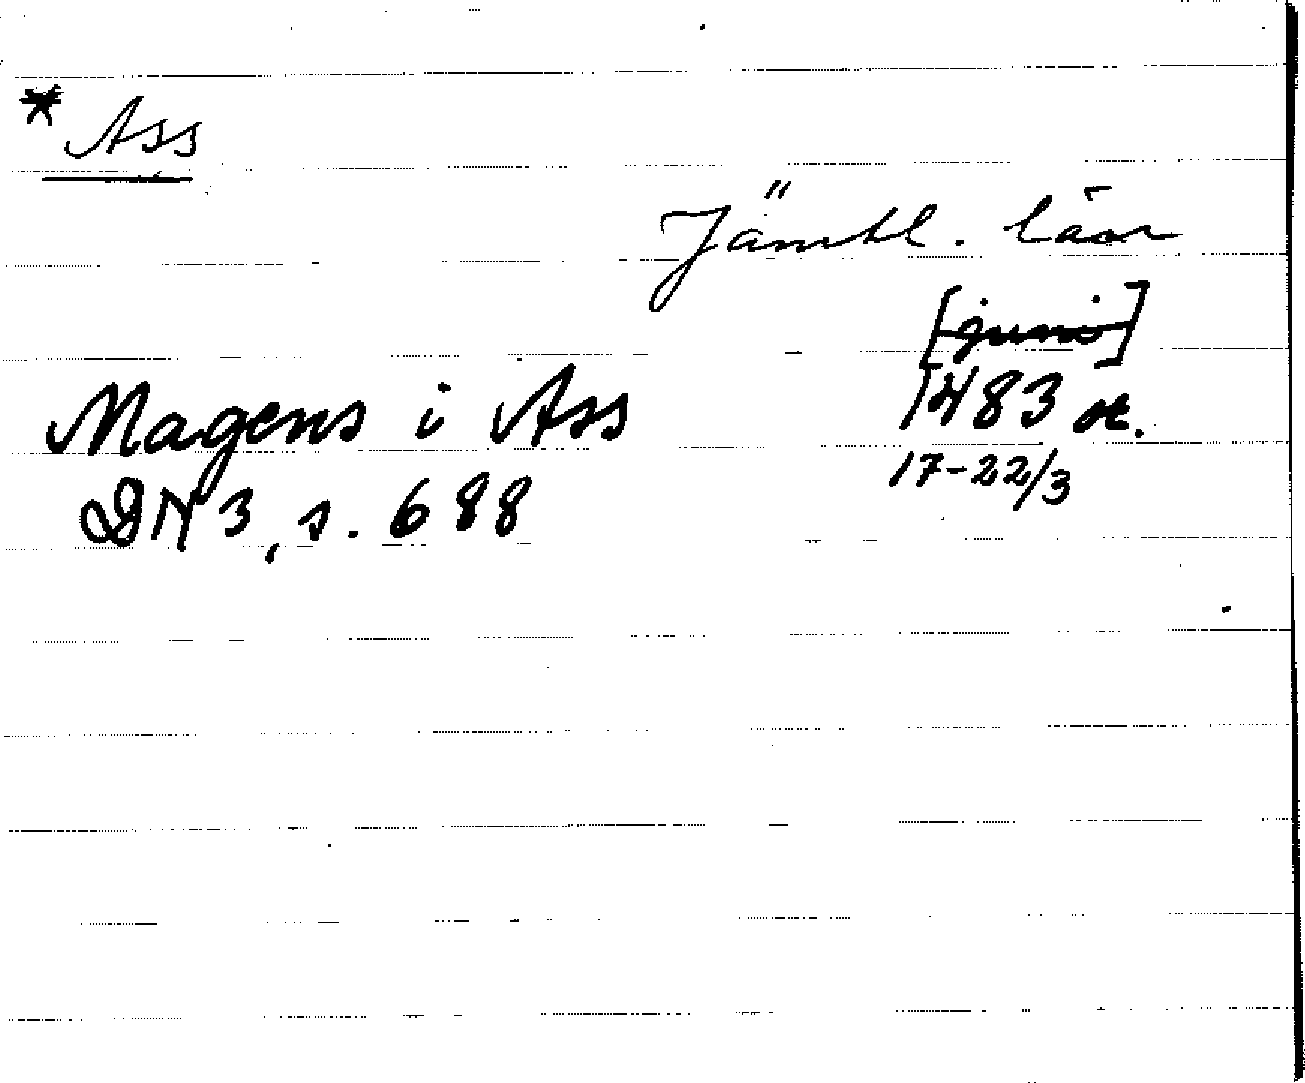 * Ass
Jämtl. län
[juni]
Magens i Ass 1483 st.
17-22/3
DN 3, s. 688